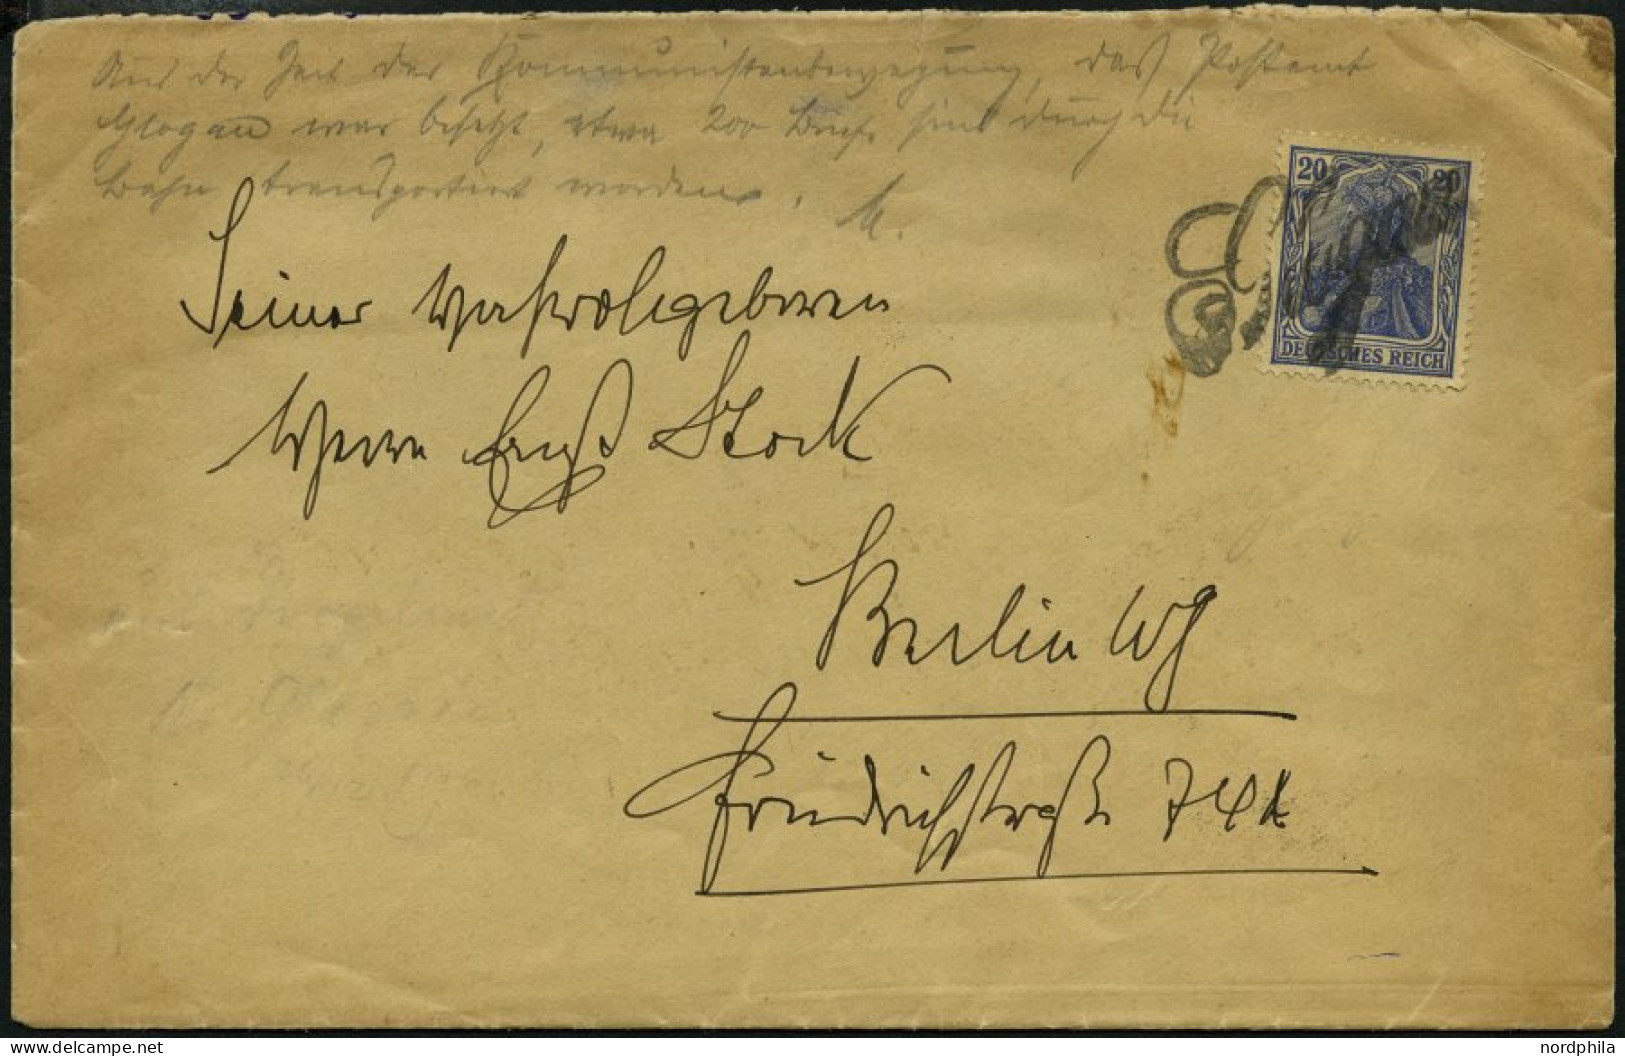 Aus der Zeit der Kommunistenbewegung, das Postamt
Glogau war besetzt, etwa 200 Briefe sind durch die
Bahn transportiert worden.
20 20
DEUTSCHES REICH
Seiner Hochwohlgeboren
Herrn Ernst Stock
Berlin W 9
Friedrichstraße 74
nordphila.com